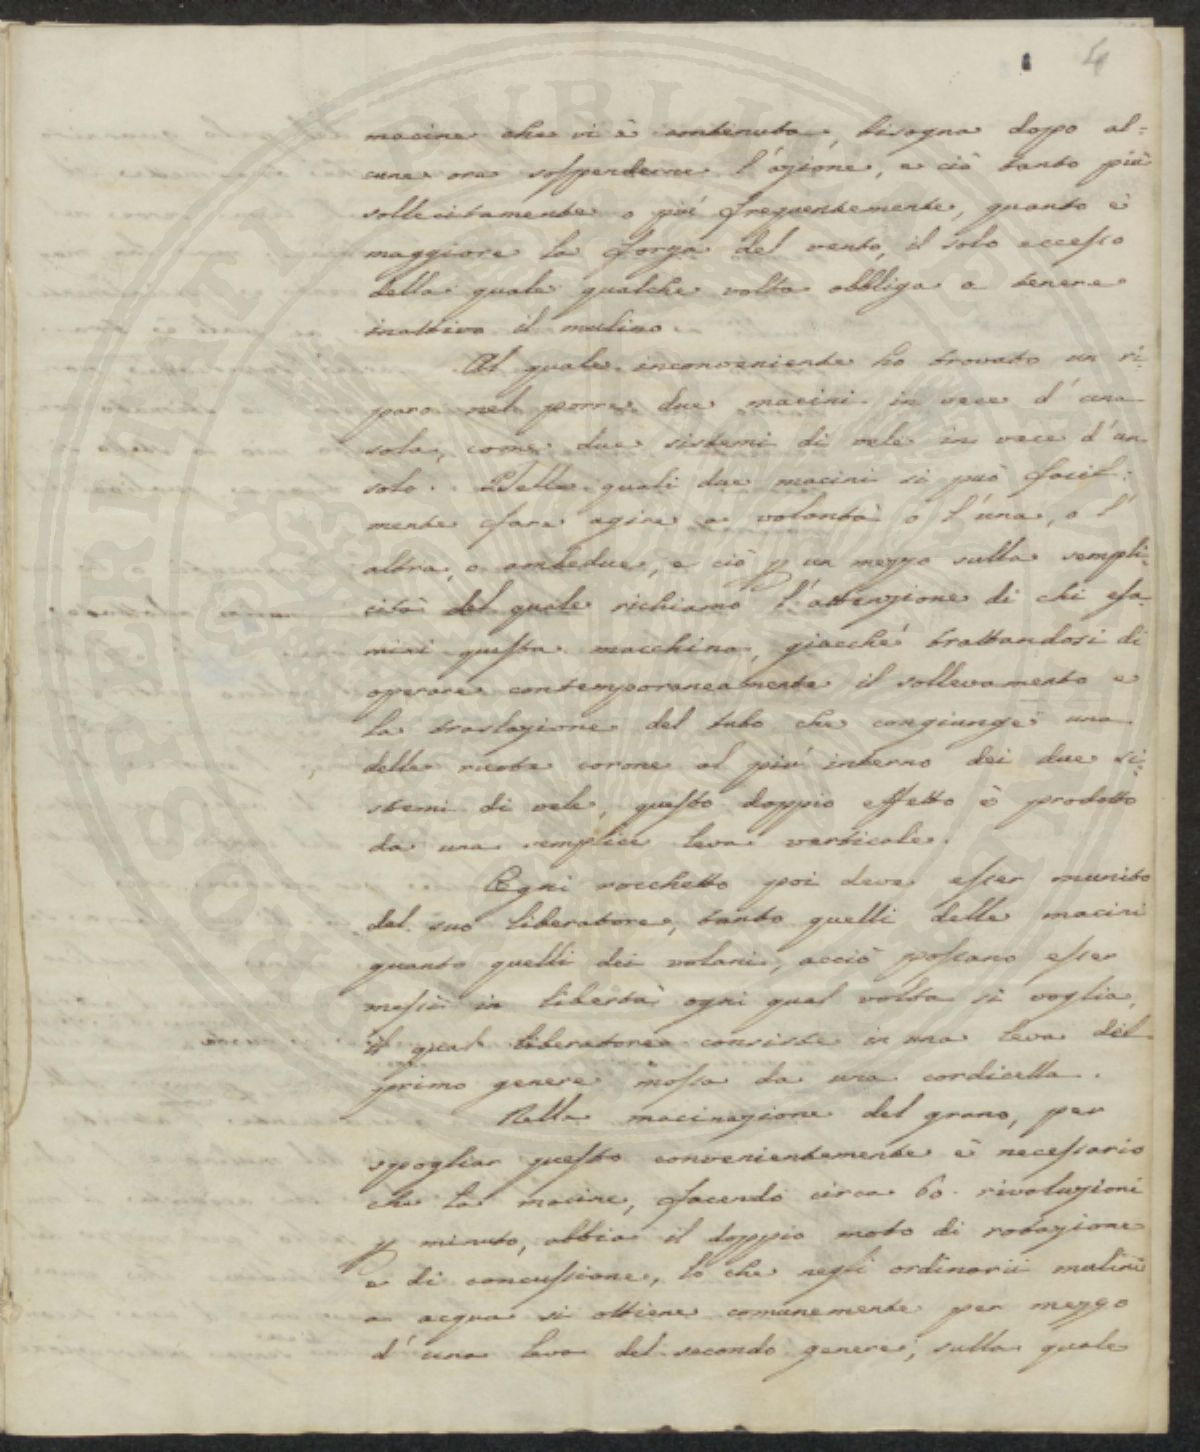 4
macine che vi è contenuta, bisogna dopo al=
cune ore sospenderne l'azione, e ciò tanto più
sollecitamente o più frequentemente, quanto è
maggiore la forza del vento, il solo eccesso
della quale qualche volta obbliga a tenere
inattivo il mulino.
Al quale inconveniente ho trovato un ri-
paro nel porre due macini in vece d'una
sola, come due sistemi di vele in vece d'un
solo. Delle quali due macini si può facil:
mente fare agire a volontà o l'una, o l'
altra, o ambedue, e ciò p un mezzo sulla sempli-
cità del quale richiamo l'attenzione di chi esa-
mini questa macchina, giacché trattandosi di
operare contemporaneamente il sollevamento e
la traslazione del tubo che congiunge una
delle ruote corone al più interno dei due si-
stemi di vele, questo doppio effetto è prodotto
da una semplice leva verticale.
Ogni rocchetto poi deve esser munito
del suo liberatore, tanto quelli delle macini
quanto quelli dei volani, acciò possano esser
messi in libertà ogni qual volta si voglia,
il qual liberatore consiste in una leva del
primo genere mossa da una cordicella.
Nella macinazione del grano, per
spogliar questo convenientemente è necessario
che la macine, facendo circa 60. rivoluzioni
p minuto, abbia il doppio moto di rotazione
e di concussione, lo che negli ordinarii mulini
a acqua si ottiene comunemente per mezzo
d'una leva del secondo genere, sulla quale